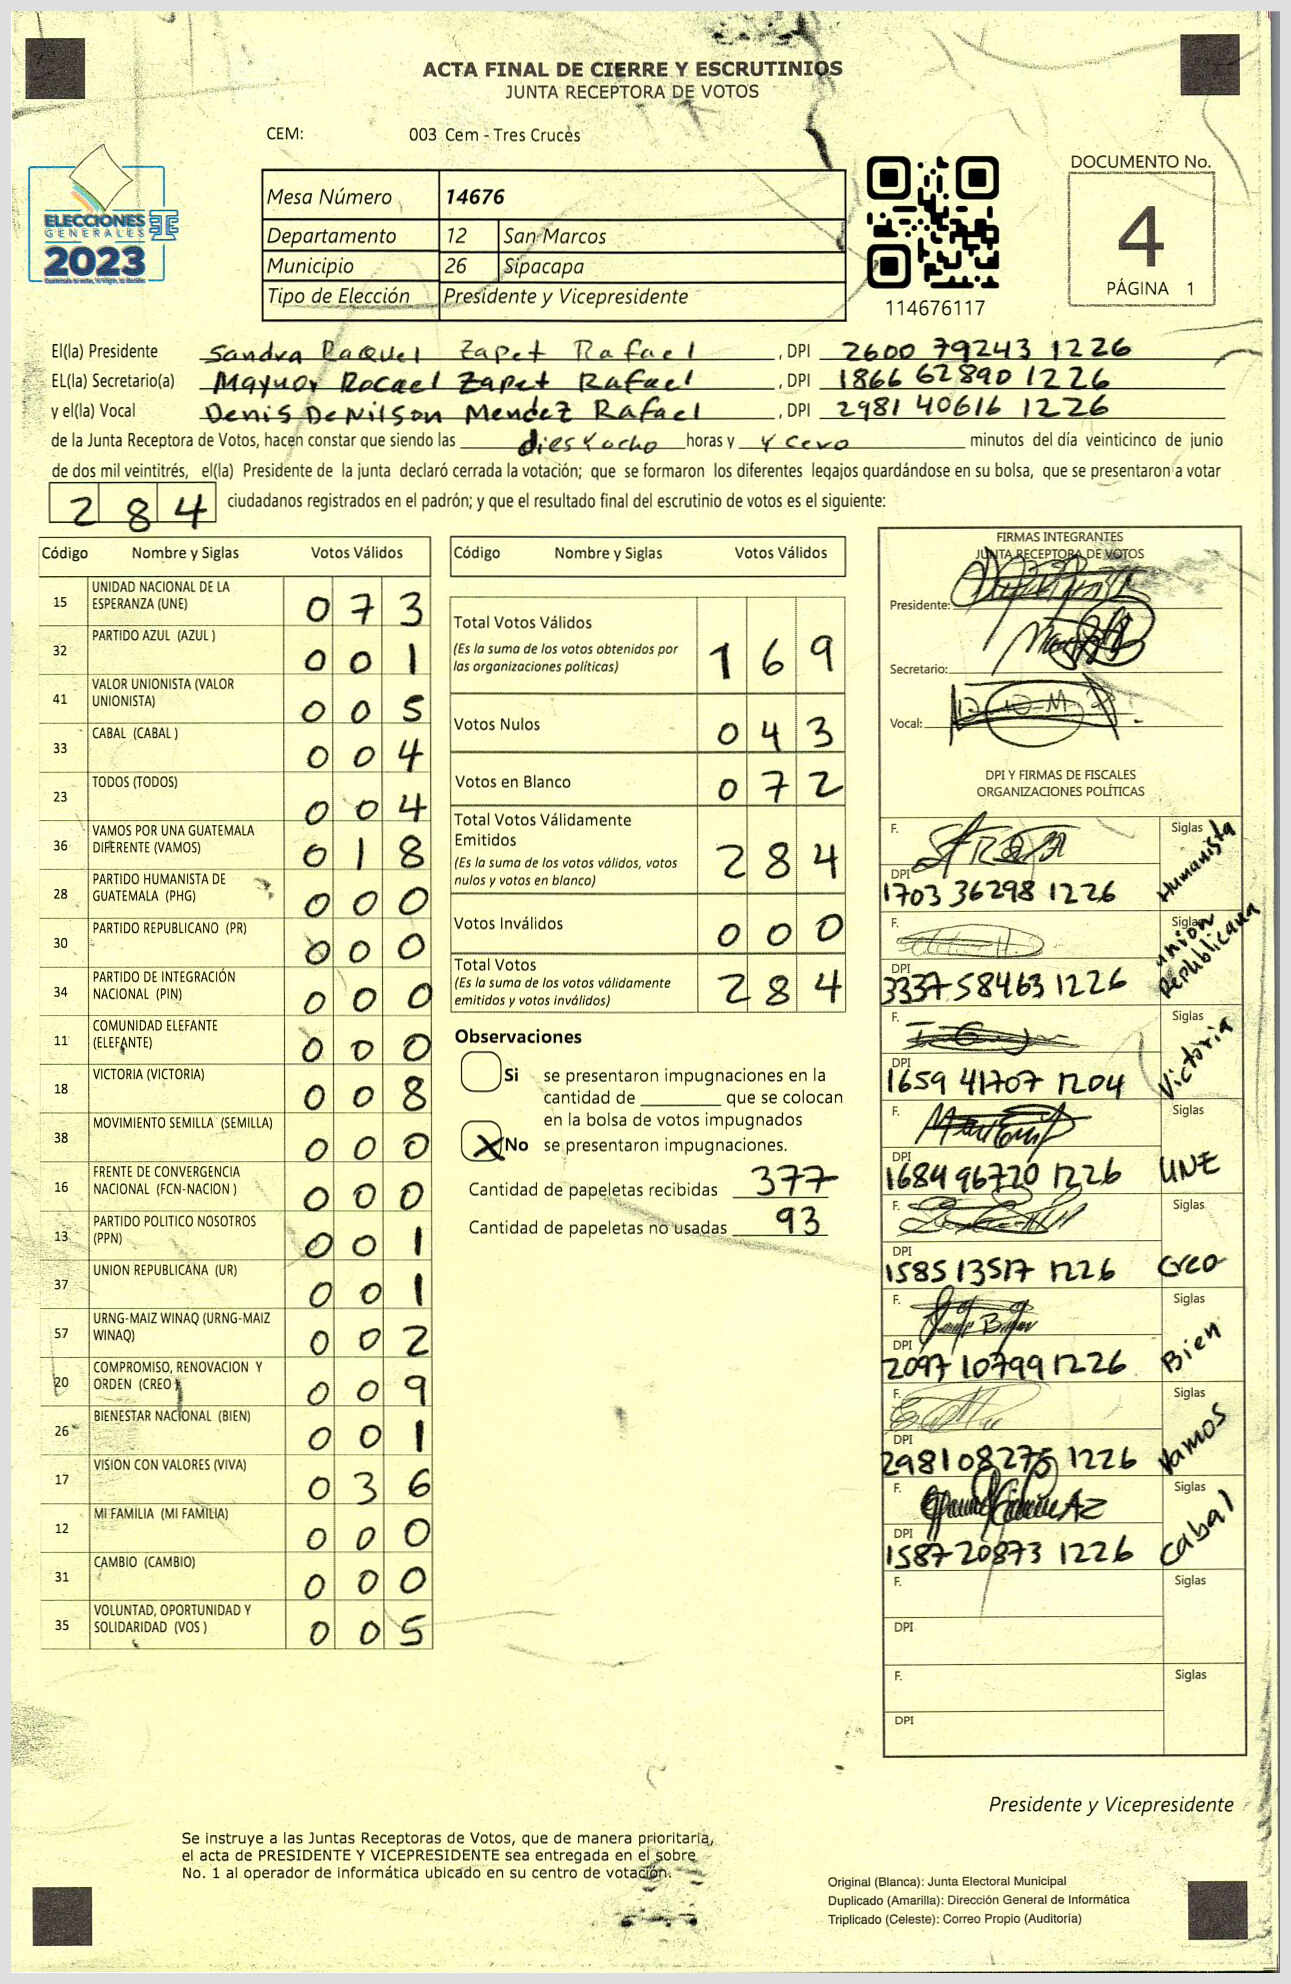 ACTA FINAL DE CIERRE Y ESCRUTINIOS
JUNTA RECEPTORA DE VOTOS
CEM: 003 Cem - Tres Cruces
ELECCIONES
GENERALES
2023
Mesa Número 14676
Departamento 12 San Marcos
Municipio 26 Sipacapa
Tipo de Elección Presidente y Vicepresidente
114676117
DOCUMENTO No.
4
PÁGINA 1
El(la) Presidente Sandra Raquel Zapet Rafael , DPI 2600 79243 1226
EL(la) Secretario(a) Maynor Rocael Zapet Rafael , DPI 1866 62890 1226
y el(la) Vocal Denis DeNilson Mendez Rafael , DPI 2981 40616 1226
de la Junta Receptora de Votos, hacen constar que siendo las dies y ocho horas y y cero minutos del día veinticinco de junio
de dos mil veintitrés, el(la) Presidente de la junta declaró cerrada la votación; que se formaron los diferentes legajos guardándose en su bolsa, que se presentaron a votar
284 ciudadanos registrados en el padrón; y que el resultado final del escrutinio de votos es el siguiente:
Código Nombre y Siglas Votos Válidos
15 UNIDAD NACIONAL DE LA ESPERANZA (UNE) 073
32 PARTIDO AZUL (AZUL ) 001
41 VALOR UNIONISTA (VALOR UNIONISTA) 005
33 CABAL (CABAL ) 004
23 TODOS (TODOS) 004
36 VAMOS POR UNA GUATEMALA DIFERENTE (VAMOS) 018
28 PARTIDO HUMANISTA DE GUATEMALA (PHG) 000
30 PARTIDO REPUBLICANO (PR) 000
34 PARTIDO DE INTEGRACIÓN NACIONAL (PIN) 000
11 COMUNIDAD ELEFANTE (ELEFANTE) 000
18 VICTORIA (VICTORIA) 008
38 MOVIMIENTO SEMILLA (SEMILLA) 000
16 FRENTE DE CONVERGENCIA NACIONAL (FCN-NACION ) 000
13 PARTIDO POLITICO NOSOTROS (PPN) 001
37 UNION REPUBLICANA (UR) 001
57 URNG-MAIZ WINAQ (URNG-MAIZ WINAQ) 002
20 COMPROMISO, RENOVACION Y ORDEN (CREO ) 009
26 BIENESTAR NACIONAL (BIEN) 001
17 VISION CON VALORES (VIVA) 036
12 MI FAMILIA (MI FAMILIA) 000
31 CAMBIO (CAMBIO) 000
35 VOLUNTAD, OPORTUNIDAD Y SOLIDARIDAD (VOS ) 005
Código Nombre y Siglas Votos Válidos
Total Votos Válidos
(Es la suma de los votos obtenidos por
las organizaciones políticas) 169
Votos Nulos 043
Votos en Blanco 072
Total Votos Válidamente
Emitidos
(Es la suma de los votos válidos, votos
nulos y votos en blanco) 284
Votos Inválidos 000
Total Votos
(Es la suma de los votos válidamente
emitidos y votos inválidos) 284
Observaciones
Si se presentaron impugnaciones en la
cantidad de ________ que se colocan
en la bolsa de votos impugnados
X No se presentaron impugnaciones.
Cantidad de papeletas recibidas 377
Cantidad de papeletas no usadas 93
FIRMAS INTEGRANTES
JUNTA RECEPTORA DE VOTOS
Presidente:
Secretario:
Vocal:
DPI Y FIRMAS DE FISCALES
ORGANIZACIONES POLÍTICAS
F. Siglas Humanista
DPI 1703 36298 1226
F. Siglas Union Republicana
DPI 3337 58463 1226
F. Siglas Victoria
DPI 1659 41707 1204
F. Siglas UNE
DPI 1684 96720 1226
F. Siglas Creo
DPI 1585 13517 1226
F. Siglas Bien
DPI 2097 10799 1226
F. Siglas Vamos
DPI 2981 08275 1226
F. Siglas Cabal
DPI 1587 20873 1226
F. Siglas
DPI
F. Siglas
DPI
Presidente y Vicepresidente
Se instruye a las Juntas Receptoras de Votos, que de manera prioritaria,
el acta de PRESIDENTE Y VICEPRESIDENTE sea entregada en el sobre
No. 1 al operador de informática ubicado en su centro de votación.
Original (Blanca): Junta Electoral Municipal
Duplicado (Amarilla): Dirección General de Informática
Triplicado (Celeste): Correo Propio (Auditoría)